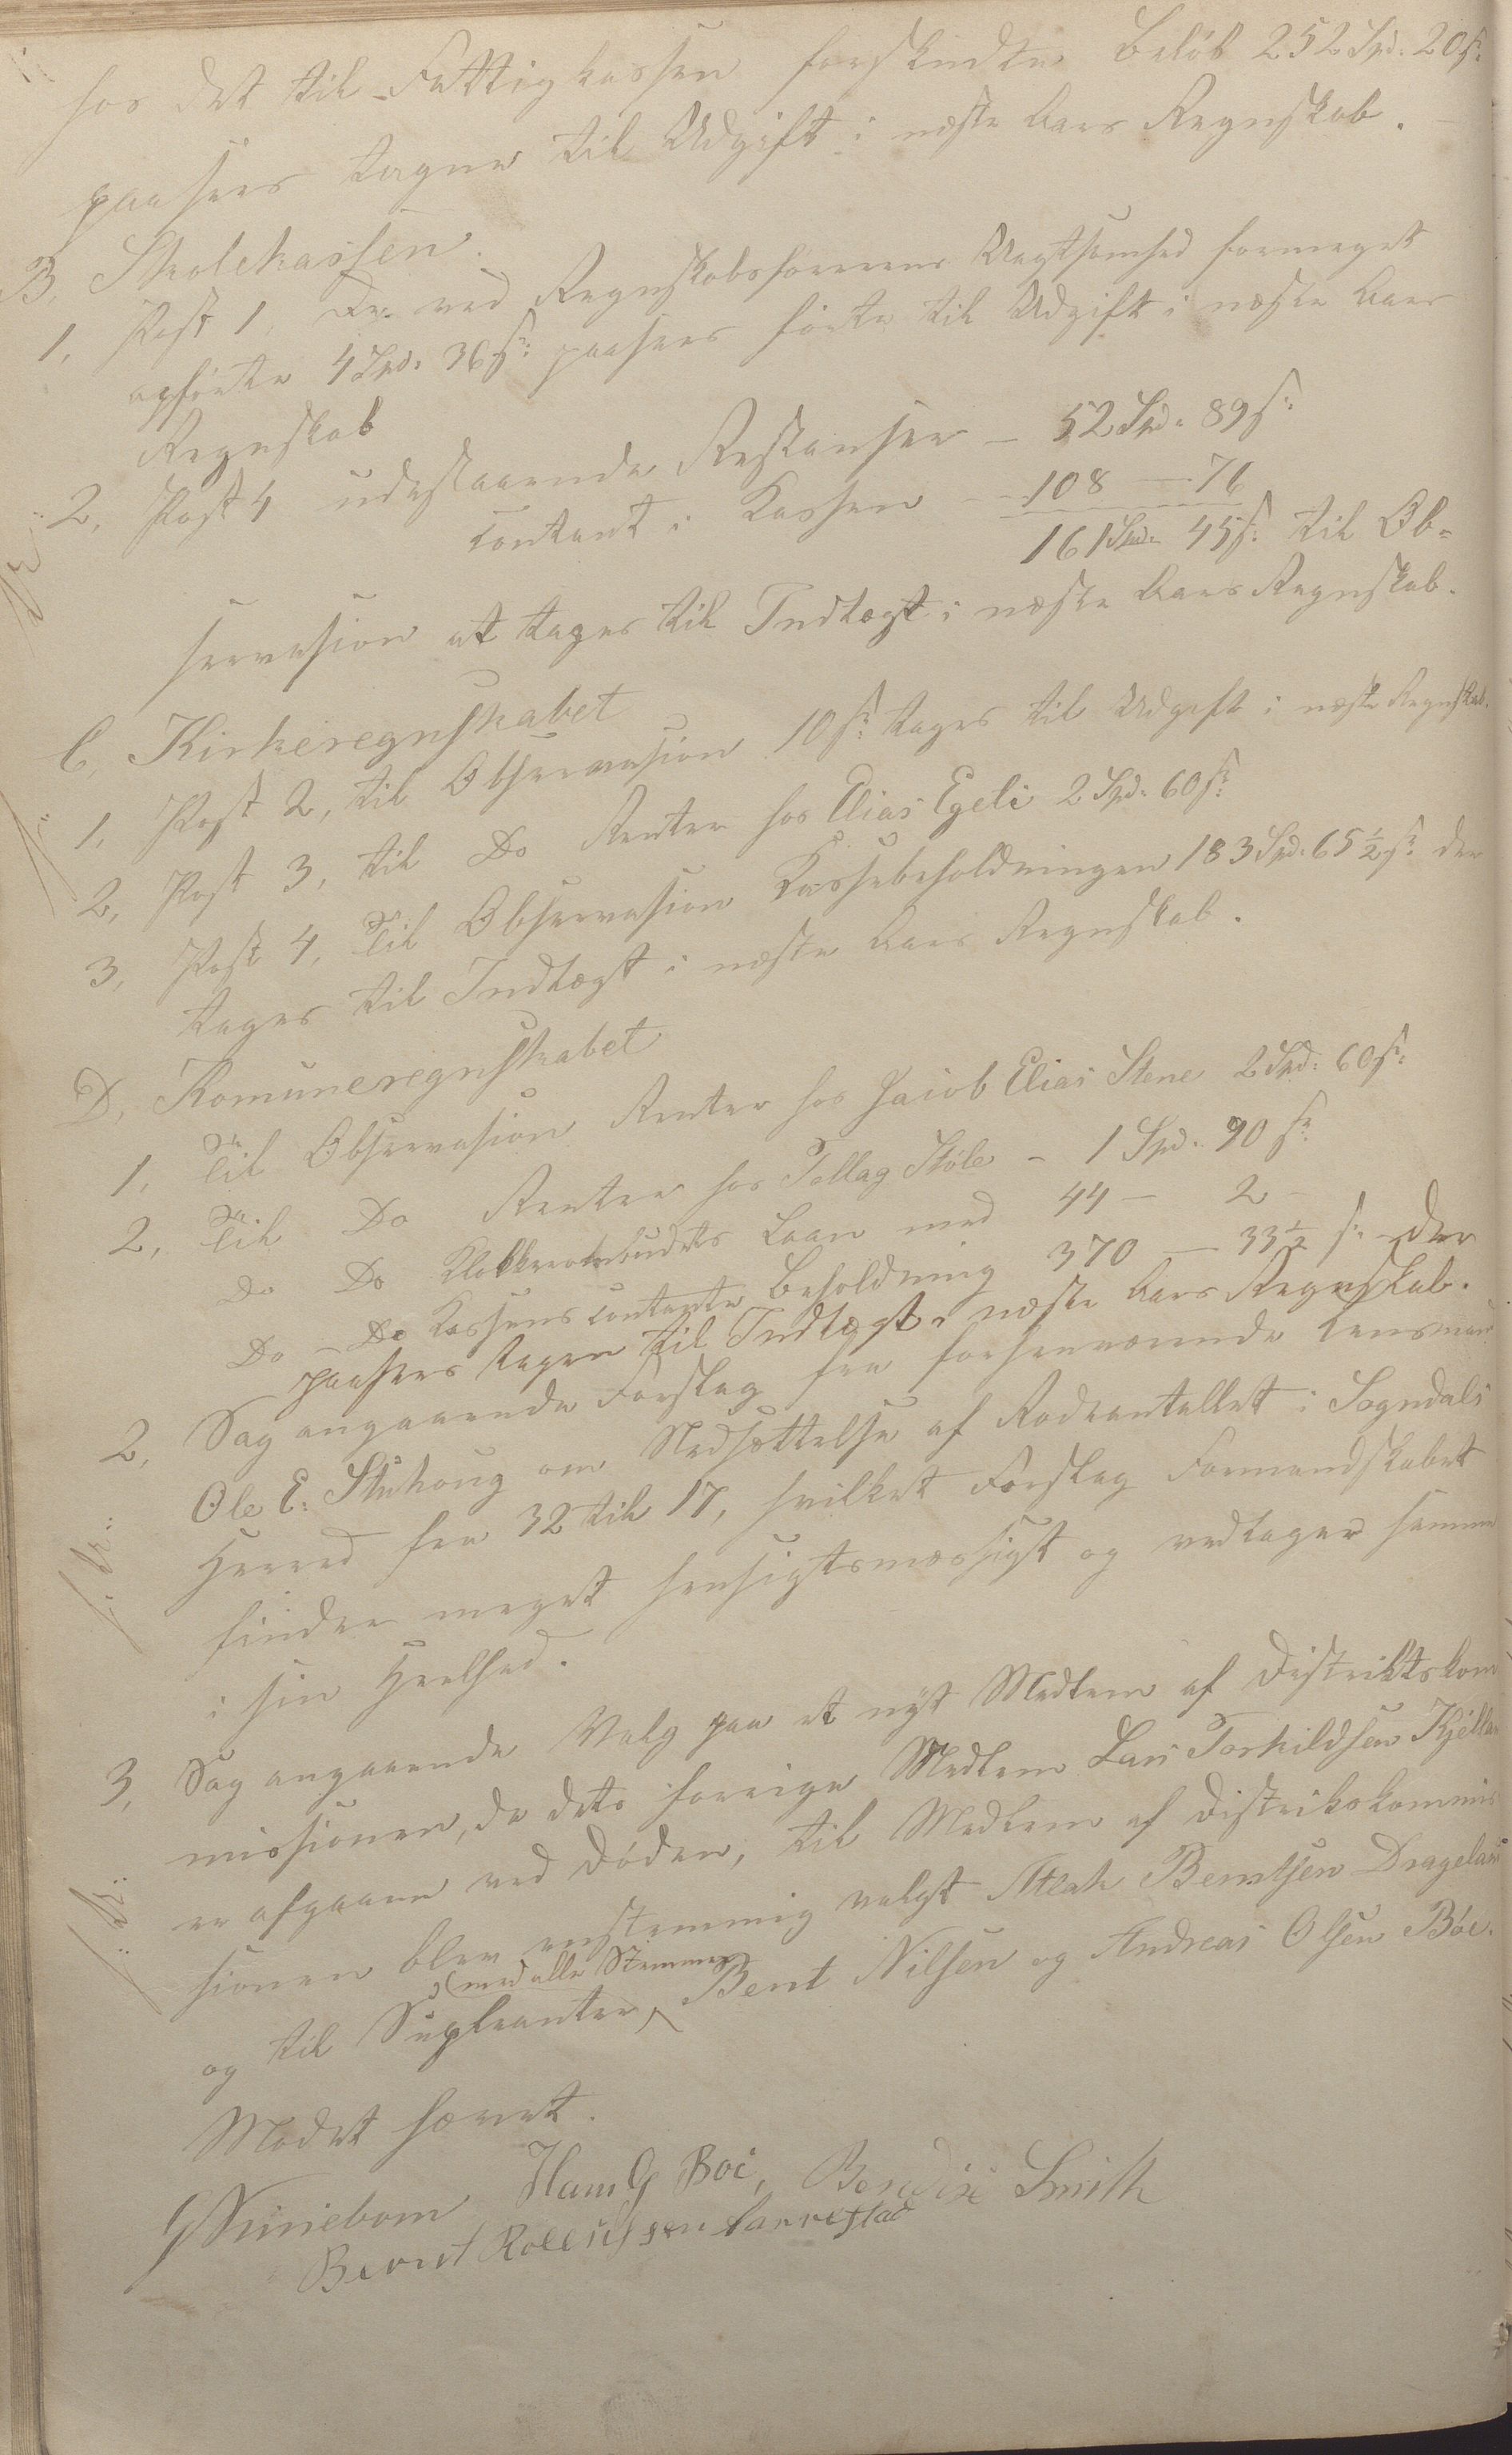 hos det til Fattigkassen forskudte Beløb 252 Spd. 20 s:
paasees tagne til Udgift i næste Aars Regnskab.
B, Skolekassen.
1, Post 1, De ved Regnskabsførerens Uagtsomhed formeget
opførte 4 Spd. 36 s: paasees førte til Udgift i næste Aars
Regnskab
2, Post 4 udestaaende Restanser – 52 Spd. 89 s:
contant i Kassen – 108 – 76
161 Spd. 45 s: til Ob-
servasion at tages til Indtægt i næste Aars Regnskab.
C, Kirkeregnskabet
1, Post 2, til Observasion 10 s: tages til Udgift i næste Regnskab.
2, Post 3, til Do Renter hos Elias Egeli 2 Spd. 60 s:
3, Post 4, Til Observasion Kassebeholdningen 183 Spd. 65½ s: der
tages til Indtægt i næste Aars Regnskab.
D, Komuneregnskabet
1, Til Observasion Renter hos Jacob Elias Stene 2 Spd. 60 s:
2, Til Do Renter hos Tollag Støle – 1 Spd. 90 s:
Do Do Laan med 44 – 2
Do – Do Kassens contante Beholdning 370 – 33½ s: der
paasees tagen til Indtægt i næste Aars Regnskab.
2, Sag angaaende Forslag fra forhenværende Lensmand
Ole E. Stuhoug om Nedsættelse af Rodeantallet i Sogndals
Herred fra 32 til 17, hvilket Forslag Formandskabet
finder meget hensigtsmæssigt og vedtager samme
i sin Heelhed.
3, Sag angaaende Valg paa et nyt Medlem af Distriktskom
missionen, da dets forrige Medlem Lars Torkildsen
er afgaaen ved Døden, til Medlem af Distrikskommis
sionen blev enstemmig valgt Atlak Bentsen Drageland
(med alle Stemmer
og til Supleanter, Bent Nilsen og Andreas Olsen Böe.
Mødet hævet.
Hans G Böe, Bendix Smith
Berent Rasmussen